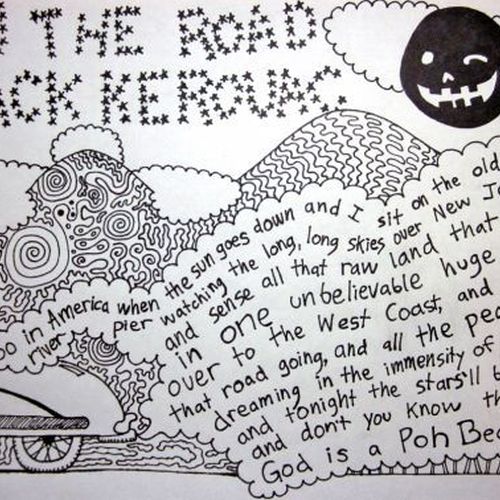 THE ROAD
ACK KEROUAC
So in America when the sun goes down and I sit on the old
river pier watching the long, long skies over New J
and sense all that raw land that
in one unbelievable huge
over to the West Coast, and
that road going, and all the peo
dreaming in the immensity of
and tonight the stars'll b
and don't you know th
God is a Poh Bea